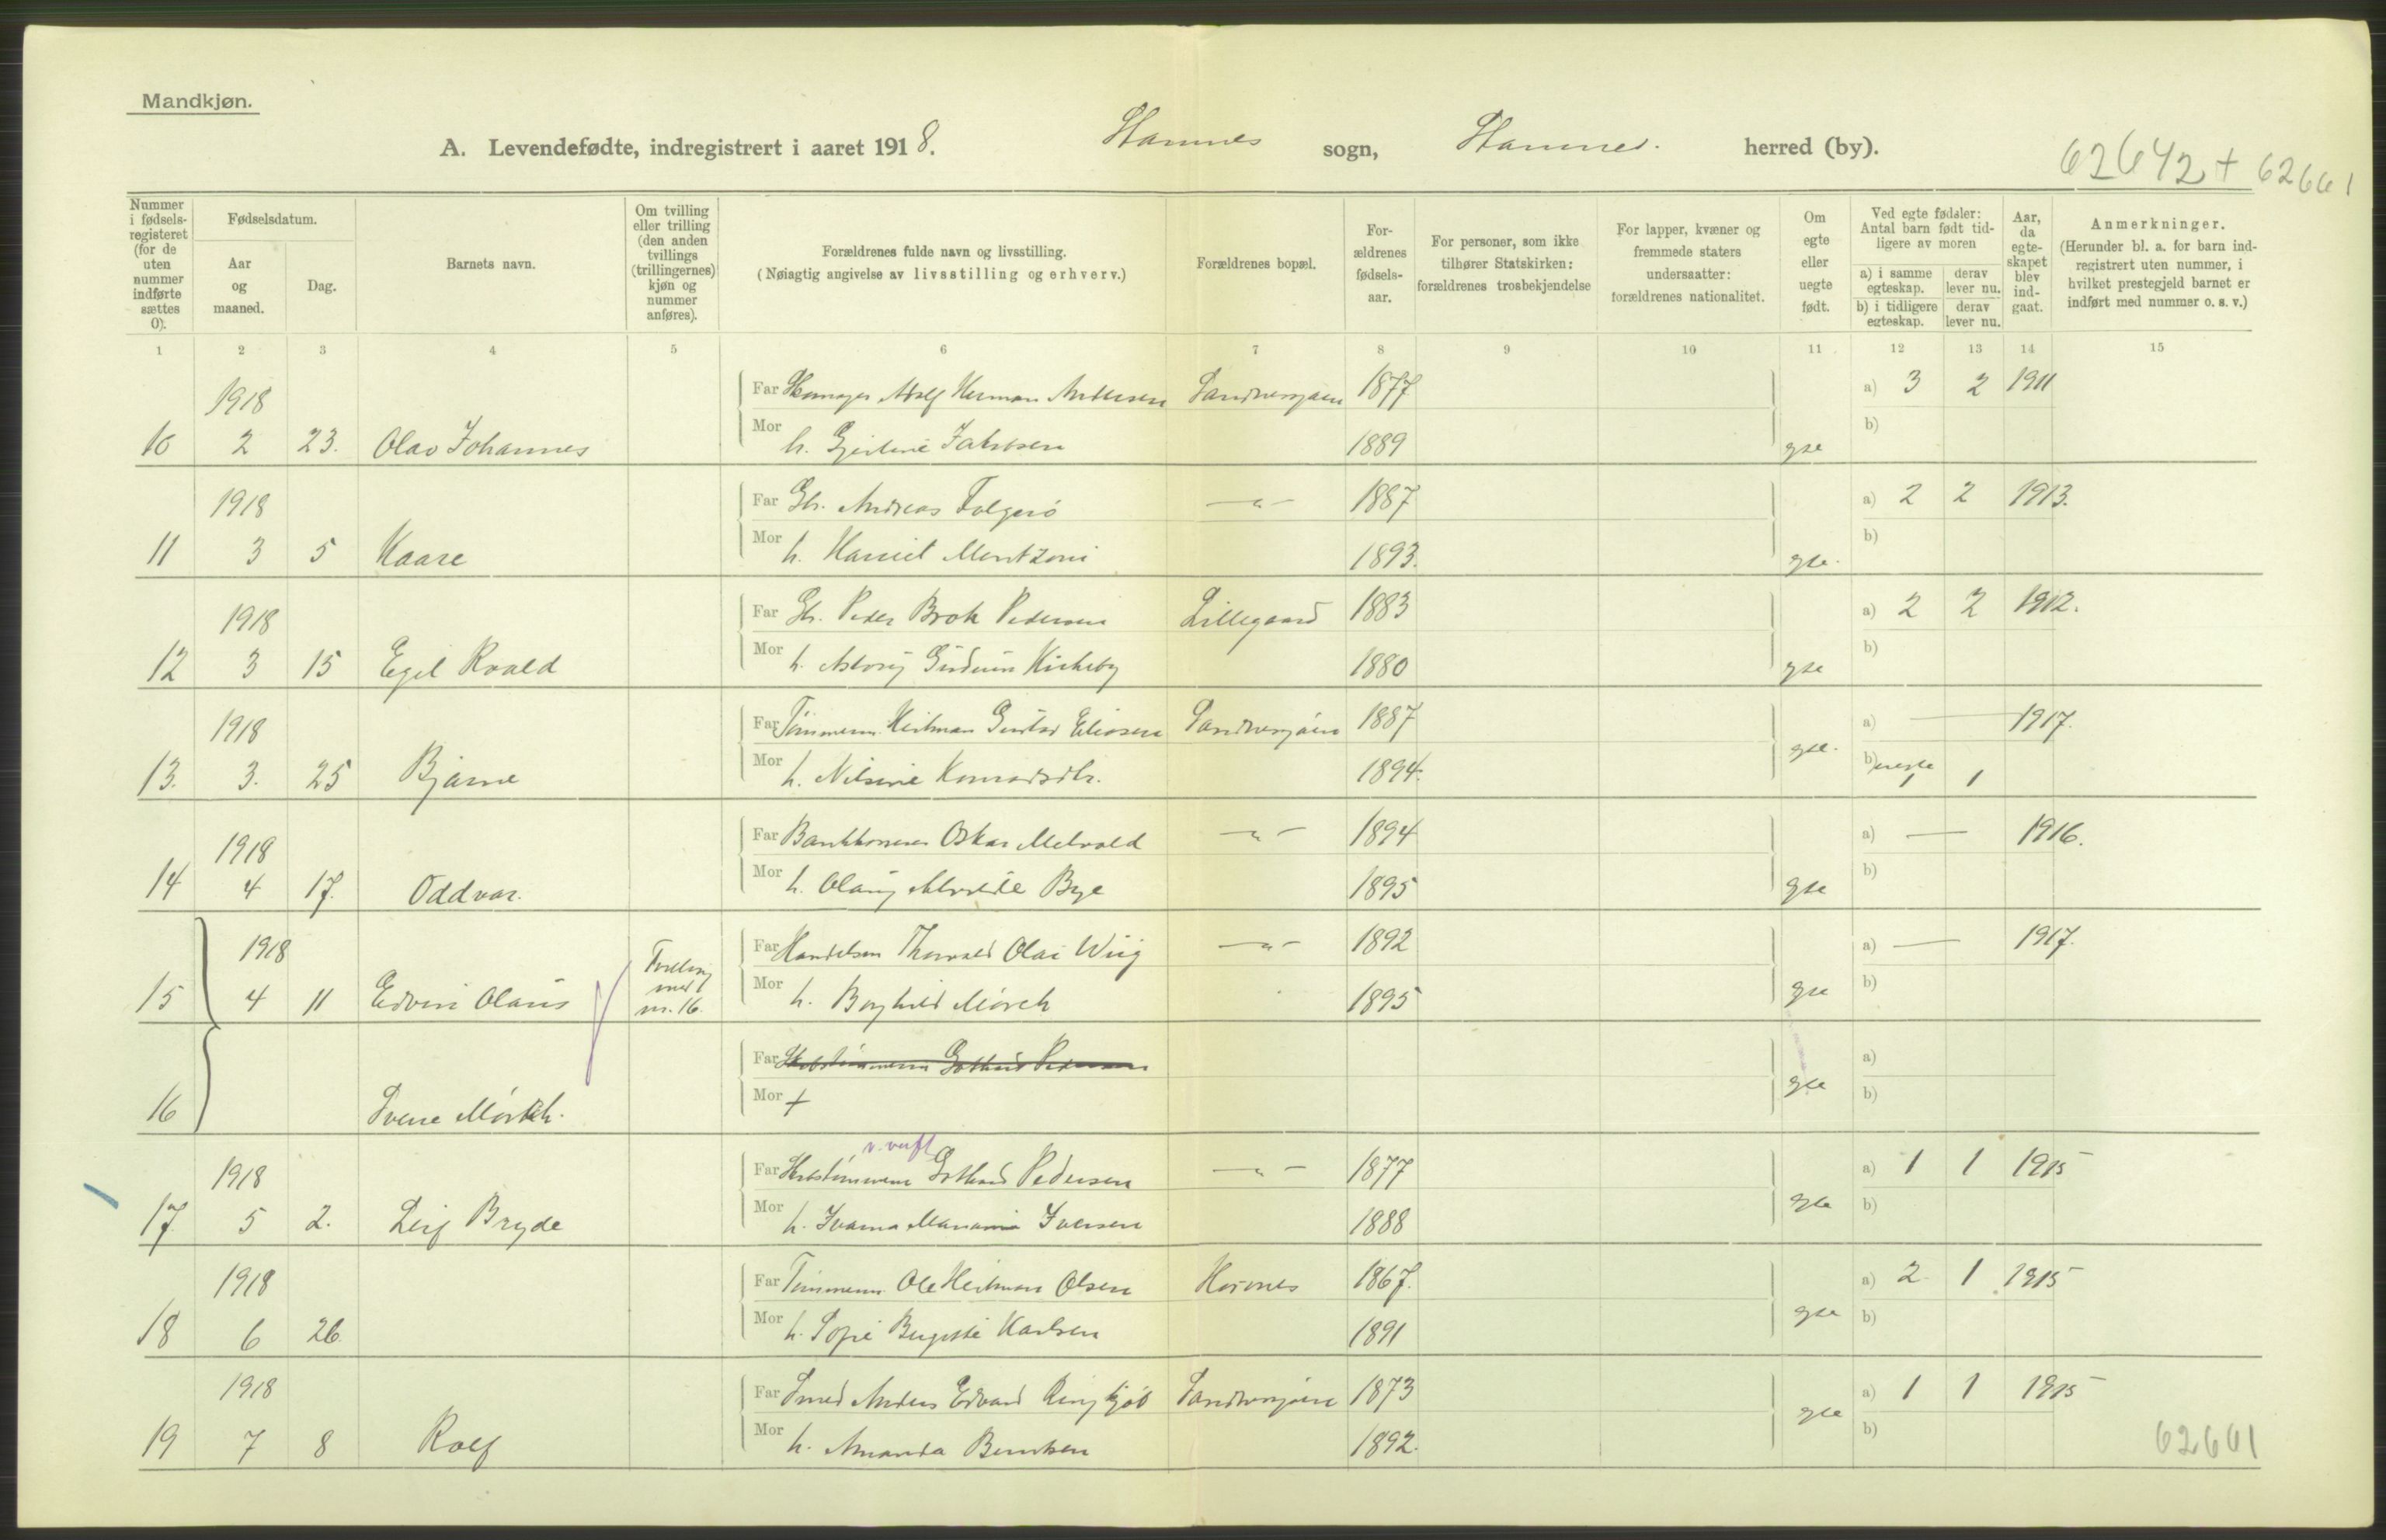 Mandkjøn.
A. Levendefødte, indregistrert i aaret 1918. Stamnes sogn, Stamnes. herred (by).
62642 + 62661
Nummer i fødselsregisteret (for de uten nummer indførte sættes 0).
Fødselsdatum.
Aar og maaned.
Dag.
Barnets navn.
Om tvilling eller trilling (den anden tvillings (trillingernes) kjøn og nummer anføres).
Forældrenes fulde navn og livsstilling.
(Nøiagtig angivelse av livsstilling og erhverv.)
Forældrenes bopæl.
Forældrenes fødselsaar.
For personer, som ikke tilhører Statskirken: forældrenes trosbekjendelse
For lapper, kvæner og fremmede staters undersaatter: forældrenes nationalitet.
Om egte eller uegte født.
Ved egte fødsler: Antal barn født tidligere av moren
a) i samme egteskap.
derav lever nu.
b) i tidligere egteskap.
derav lever nu.
Aar, da egteskapet blev indgaat.
Anmerkninger.
(Herunder bl. a. for barn indregistrert uten nummer, i hvilket prestegjeld barnet er indført med nummer o. s. v.)
1 2 3 4 5 6 7 8 9 10 11 12 13 14 15
1918 Far Adolf Herman Andersen Sandnessjøen 1877 a) 3 2 1911
10 2 23. Olav Johannes Mor h. Jakobsen 1889 gte b)
1918 Far Andreas Folgerø —"— 1887 a) 2 2 1913.
11 3 5 Kaare Mor h. Mentzoni 1893. gte. b)
1918 Far Peder Brok Pedersen Lillegaard 1883 a) 2 2 1912.
12 3 15 Egil Roald Mor h. Gudrun Kirkeby 1880 gte b)
1918 Far Tømmerm. Heitman Gustav Eliasen Sandnessjøen 1887 a) — 1917.
13. 3. 25 Bjarne Mor h. Nilsine Konradsdtr. 1894. gte. b) uegte 1 1
1918 Far Oskar Melvold —"— 1894 a) — 1916.
14 4 17. Oddvar. Mor h. Olaug Bye 1895 gte b)
1918 Far Handelsm Thorvald Olai Wiig —"— 1892 a) — 1917.
15 4 11 Edvin Olaus Tvilling med nr. 16. Mor h. Borghild Mørch 1895 gte b)
Far Gothard Pedersen a)
16 Sverre Mørch. Mor + gte b)
v. verft
1918 Far Gothard Pedersen —"— 1877 a) 1 1 1915
17. 5 2. Leif Bryde Mor h. Ivanna Iversen 1888 gte b)
1918 Far Tømmerm. Ole Heitman Olsen 1867. a) 2 1 1915
18 6 26 Mor h. Karlsen 1891 gte b)
1918 Far Smed Anders Edvard Sandnessjøen 1873 a) 1 1 1915
19 7 8 Rolf Mor h. Amanda Berntsen 1892. gte b)
62661